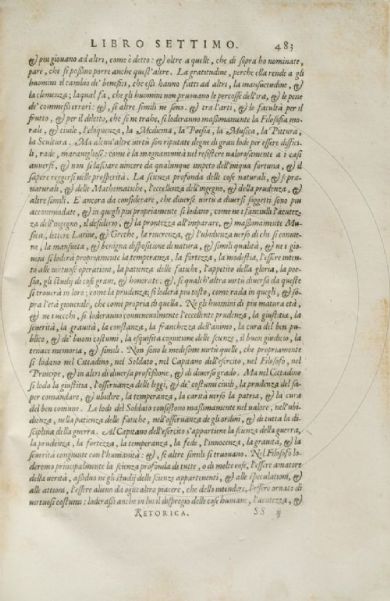 LIBRO SETTIMO. 483
& piu giouano ad altri, come è detto: & oltre a quelle, che di sopra ho nominate,
pare, che si possino porre anche quest'altre. La gratitudine, perche ella rende a gli
huomini il cambio de' beneficij, che essi hanno fatti ad altri, la mansuetudine, &
la clemenza; laqual fa, che gli huomini non pruouano le percosse dell'ira, & le pene
de' commessi errori: &, si altre simili ne sono. & tra l'arti, & le facultà per il
frutto, & per il diletto, che se ne trahe, si loderanno massimamente la Filosofia mo-
rale, & ciuile, l'eloquenza, la Medicina, la Poesia, la Musica, la Pittura,
la Scultura. Ma alcun'altre uirtù son riputate degne di gran lode per essere diffici-
li, rade, marauigliose: come è la magnanimità nel resistere ualorosamente a i casi
auuersi, & non si lasciare uincere da qualunque impeto dell'impia fortuna, & il
sapere reggersi nelle prosperità. La scienza profonda delle cose naturali, & sopra-
naturali, & delle Mathematiche, l'eccellenza dell'ingegno, & della prudenza, &
altre simili. E' ancora da considerare, che diuerse uirtù a diuersi suggetti sono piu
accommodate, & in quegli piu propriamente si lodano, come ne fanciulli l'acutez-
za dell'ingegno, il desiderio, & la prontezza all'imparare, & massimamente Mu-
sica, lettere Latine, & Greche, la riuerenza, & l'ubedienza uerso di chi si conuie-
ne, la mansueta, & benigna dispositione di natura, & simili qualità, & ne i gio-
uani si loderà propriamente la temperanza, la fortezza, la modestia, l'essere inten-
to alle uirtuose operationi, la patienza delle fatiche, l'appetito della gloria, la poe-
sia, gli studij di cose graui, & honorate: & si qualch'altra uirtù diuersa da queste
si trouerà in loro; come la prudenza; si loderà piu tosto, come rada in quegli, & so-
pra l'età generale, che come propria di quella. Ne gli huomini di piu matura età,
& ne uecchi, si loderanno conuenientemente l'eccellente prudenza, la giustitia, la
seuerità, la grauità, la constanza, la franchezza dell'animo, la cura del ben pu-
blico, & de' buoni costumi, la esquisita cognitione delle scienze, il buon giudicio, la
tenace memoria, & simili. Non sono le medesime uirtù quelle, che propriamente
si lodano nel Cittadino, nel Soldato, nel Capitano dell'esercito, nel Filosofo, nel
Principe, & in altri di diuersa professione, & di diuerso grado. Ma nel Cittadino
si loda la giustitia, l'osseruanza delle leggi, & de' costumi ciuili, la prudenza del sa-
per comandare, & ubedire, la temperanza, la carità uerso la patria, & la cura
del ben comune. Le lodi del Soldato consistono massimamente nel ualore, nell'ubi-
dienza, nella patienza delle fatiche, nell'osseruanza de gli ordini, & di tutta la di-
sciplina della guerra. Al Capitano dell'esercito s'appartiene la scienza della guerra,
la prudenza, la fortezza, la temperanza, la fede, l'innocenza, la grauità, & la
seuerità congiunte con l'humanità: & si altre simili si truouano. Nel Filosofo lo-
deremo principalmente la scienza profonda di tutte, o di molte cose, l'essere amatore
della uerità, assiduo ne gli studij delle scienze appartenenti, & alle speculationi, &
alle attioni, l'essere alieno da ogni altro piacere, che dello intendere, l'essere ornato di
uirtuosi costumi: loderassi anche in lui il dispregio delle cose humane, l'acutezza, &
RETORICA. SS ij